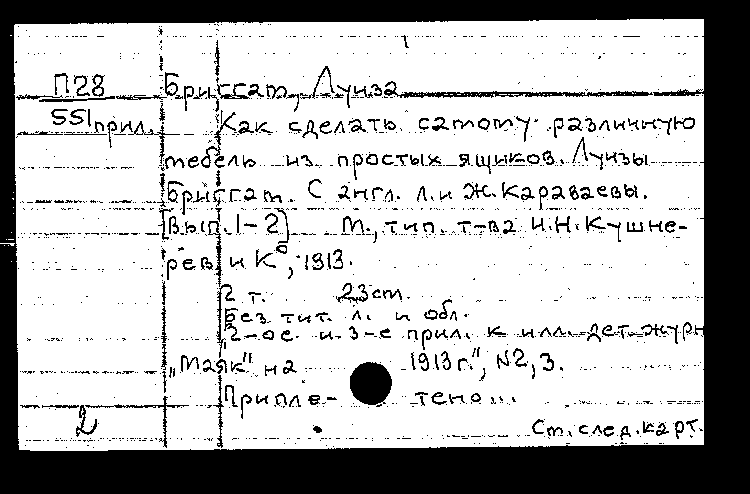 П28 Бриггат, Луиза
551прил. Как сделать самому различную
мебель из простых ящиков. Луизы
Бриггам. С англ. Л. и Ж. Караваевы.
[Вып. 1-2] М., тип. т-ва И.Н. Кушне-
рев и К⁰, 1913.
2 т. 23 см.
Без тит. л. и обл.
"2-ое и 3-е прил. к илл. дет. журн
"Маяк" на 1913 г.", N2, 3.
Припле- тено...
2
См. след. карт.